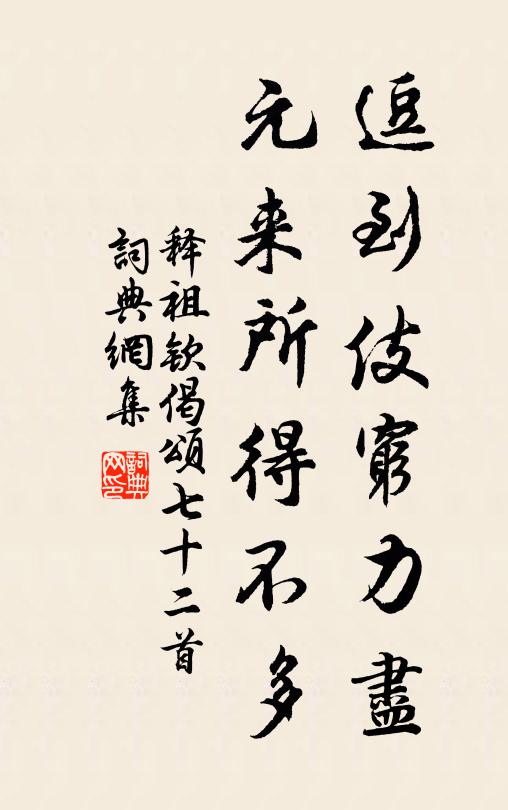 逗到伎窮力盡
元来所得不多
释祖钦偈頌七十二首
詞典網集
詞典网印